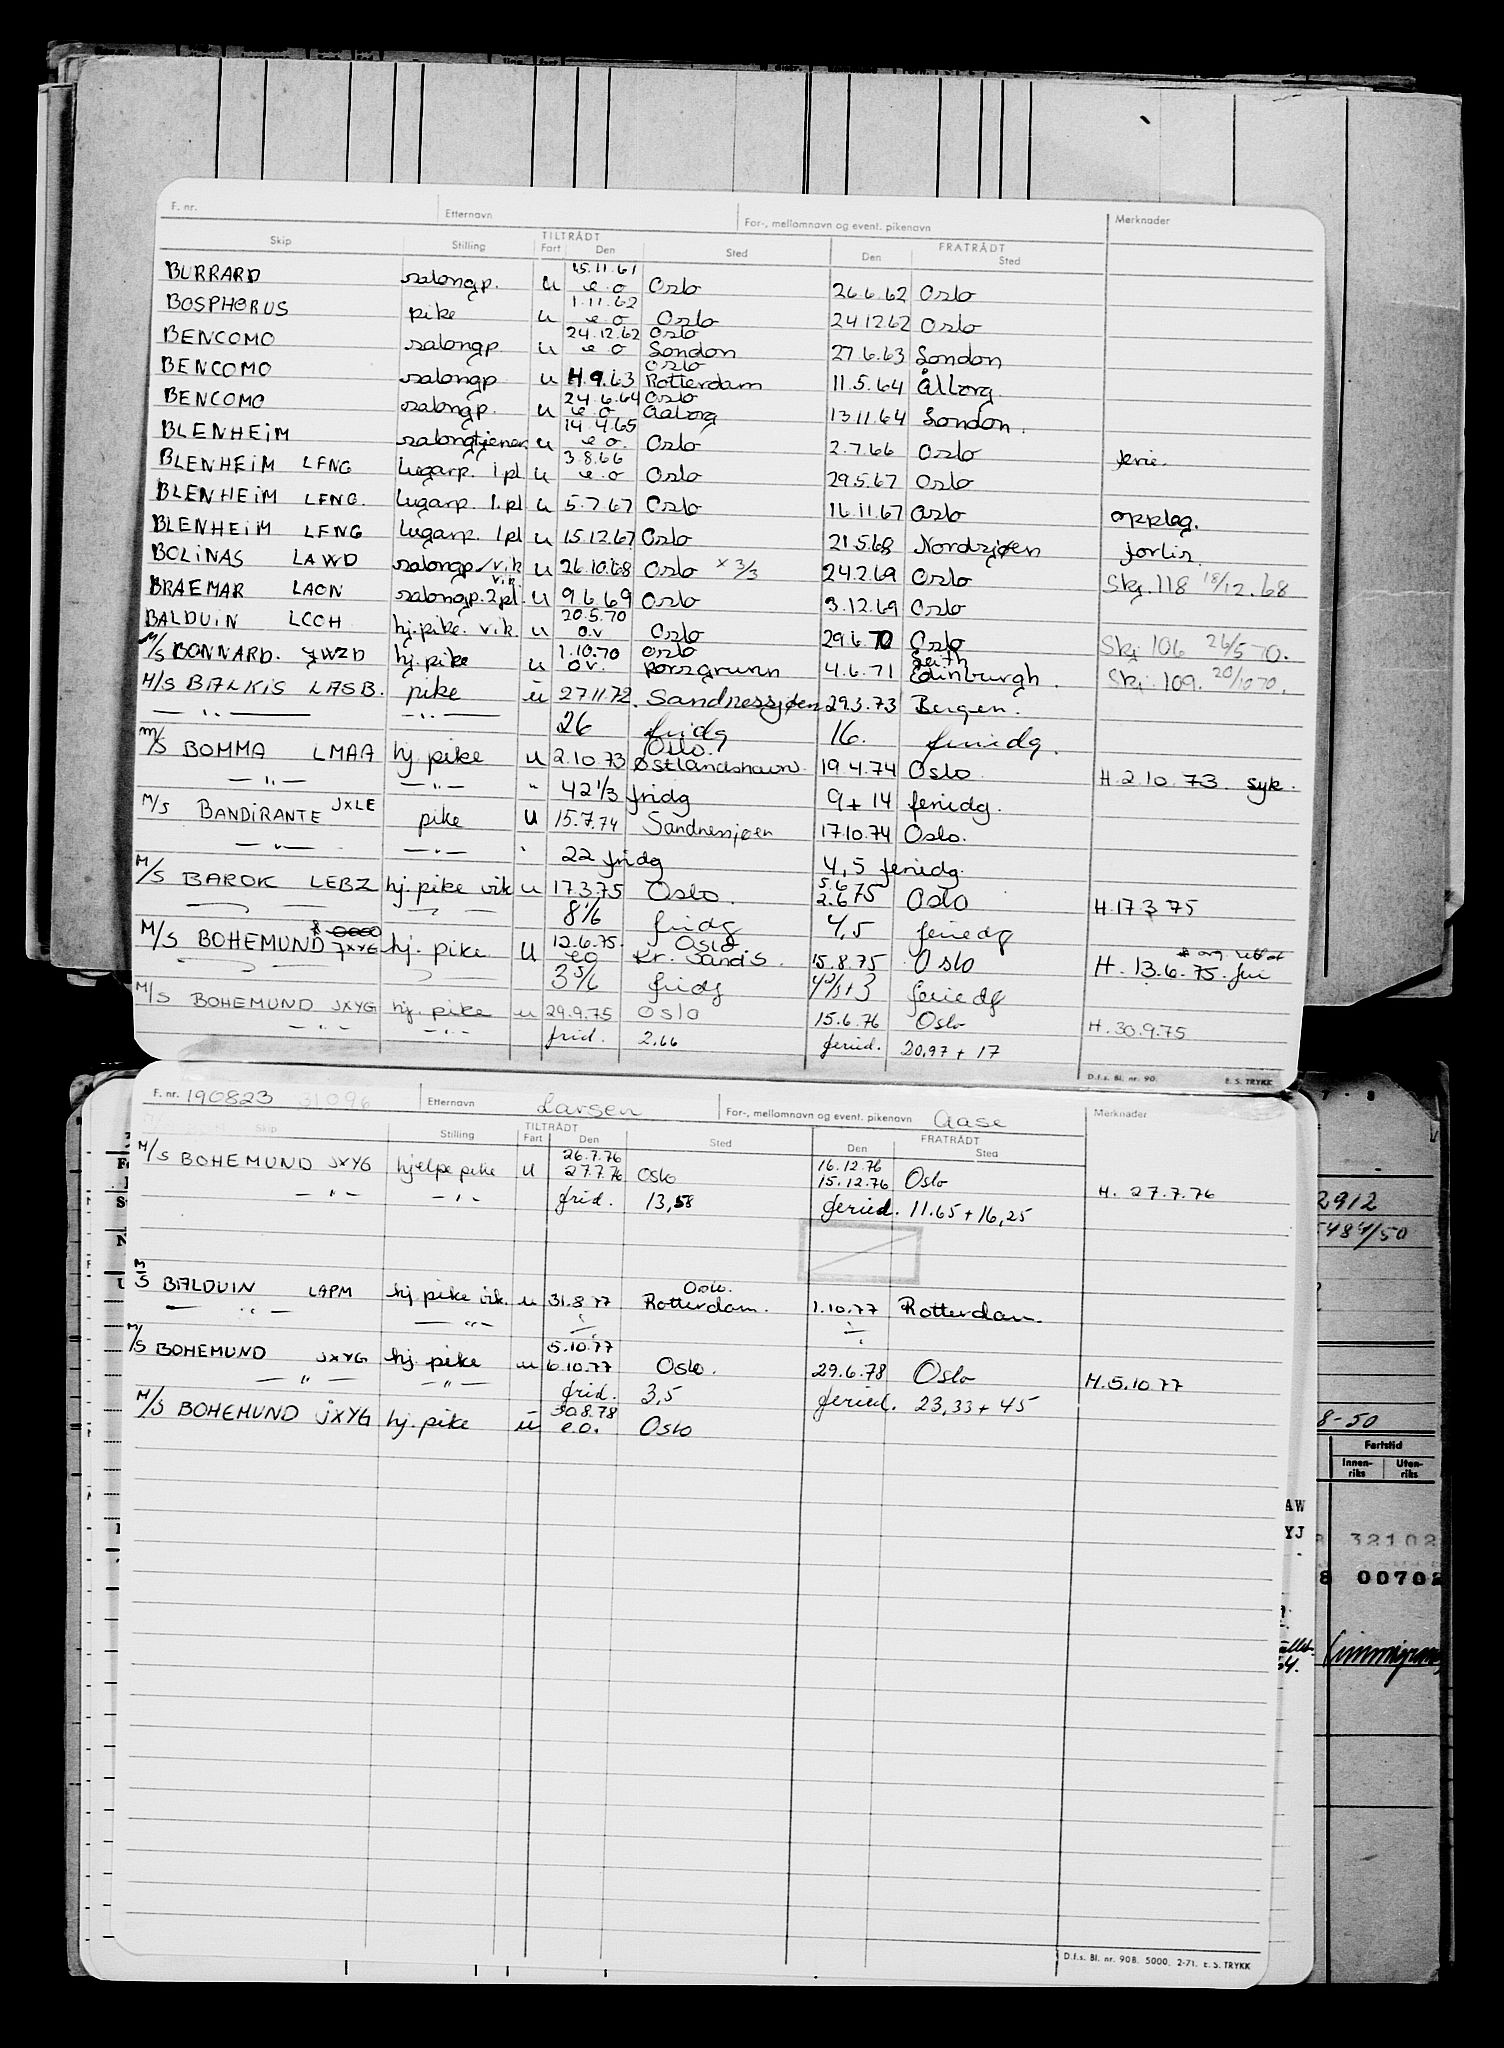 F. nr. Etternavn For-, mellomnavn og event. pikenavn Merknader
Skip Stilling TILTRÅDT Fart Den Sted FRATRÅDT Den Sted
BURRARD salongp. u 15.11.61 e.o Oslo 26.6.62 Oslo
BOSPHORUS pike u 1.11.62 e o Oslo 24.12.62 Oslo
BENCOMO salongp u 24.12.62 e o Oslo London 27.6.63 London
BENCOMO salongp u 9.63 Oslo Rotterdam 11.5.64 Ålborg.
BENCOMO salongp. u 24.6.64 e.o. Oslo Aalborg 13.11.64 London.
BLENHEIM salongtjener u 14.4.65 e o. Oslo 2.7.66 Oslo ferie.
BLENHEIM LFNG lugarp. 1.pl u 3.8.66 e.o Oslo 29.5.67 Oslo
BLENHEIM LFNG. lugarp. 1.pl u 5.7.67 Oslo 16.11.67 Oslo opplag.
BLENHEIM LFNG lugarp. 1pl u 15.12.67 Oslo 21.5.68 Nordsjøen forlis.
BOLINAS LAWD salongp./vik u 26.10.68 Oslo x 3/3 24.2.69 Oslo Skj. 118 18/12.68
BRAEMAR LAON salongp. 2pl. vik. u 9.6.69 Oslo 3.12.69 Oslo
BALDUIN LCOH hj.pike. vik. u 20.5.70 o.v Oslo 29.6.70 Oslo Skj 106 26/5 70.
M/S BONNARD. JWZD hj. pike u 1.10.70 o.v. Oslo Porsgrunn 4.6.71 Leith Edinburgh. Skj. 109. 20/10 70.
M/S BALKIS LASB. pike u 27.11.72. Sandnessjøen 29.3.73 Bergen.
— " — — " — 26 fridg 16. feriedg.
M/S BOMMA LMAA hj. pike u 2.10.73 Oslo. Østlandshavn. 19.4.74 Oslo. H. 2.10.73. syk.
— " — — " — " 42 1/3 fridg 9 + 14 feriedg.
M/S BANDIRANTE JXLE pike u 15.7.74 Sandnessjøen 17.10.74 Oslo.
— " — — " — " 22 fridg 4,5 feriedg.
M/S BAROK LEBZ hj. pike vik u 17.3.75 Oslo. 5.6 2.6.75 Oslo H.17 3 75
8 1/6 fridg 4,5 feriedg
M/S BOHEMUND JXYG hj. pike u 12.6.75. eo Oslo. Kr. Sand S. 15.8.75 Oslo H. 13.6.75.
3 5/6 fridg 4 2/3 + 3 feriedg
M/S BOHEMUND JXYG hj. pike u 29.9.75 Oslo 15.6.76 Oslo H. 30.9.75
— " — — " — frid. 2,66 feried. 20,97 + 17
D.f.s. Bl. nr. 90. E. S. TRYKK
F. nr. 190823 31096 Etternavn Larsen For-, mellomnavn og event. pikenavn Aase Merknader
Skip Stilling TILTRÅDT Fart Den Sted FRATRÅDT Den Sted
M/S BOHEMUND JXYG hjelpepike u 26.7.76 27.7.76 Oslo 16.12.76 15.12.76 Oslo H. 27.7.76
— " — — " — frid. 13,58 feried. 11.65 + 16,25
M/S BALDUIN LAPM hj. pike vik. u 31.8.77 Oslo. Rotterdam. 1.10.77 Rotterdam.
— " — — " —
M/S BOHEMUND JXYG hj. pike u 5.10.77 6.10.77 Oslo. 29.6.78 Oslo H.5.10 77
— " — — " — frid. 3,5 feried. 23,33 + 45
M/S BOHEMUND JXYG hj. pike u 30.8.78 e.o. Oslo
D.f.s. Bl. nr. 90B. 5000. 2-71. E. S. TRYKK
2912
5484/50
8-50
Fartstid
Innen- riks Uten- riks
AW
YJ
32102
8 00702